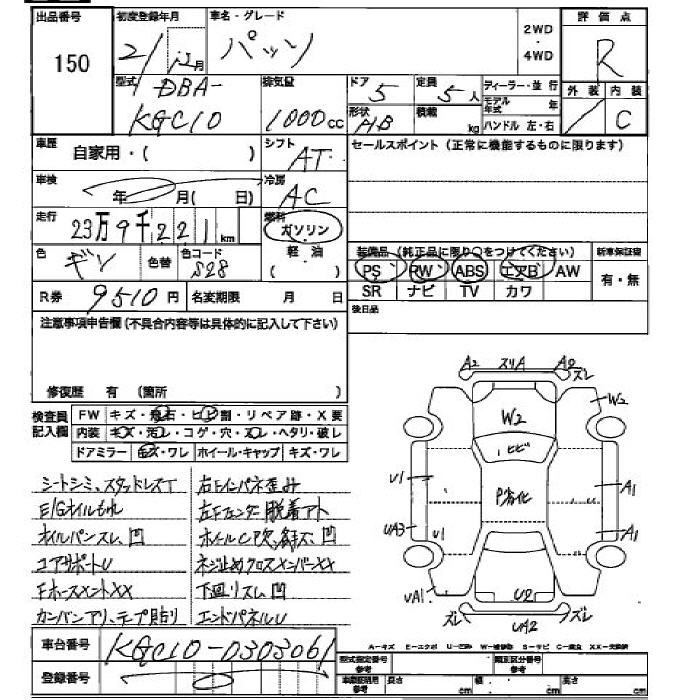 出品番号 初度登録年月 車名・グレード 評価点
150 2/12月 パッソ 2WD・4WD R
型式 DBA-KGC10 排気量 1000cc ドア 5 定員 5人 ディーラー・並行 外装 / 内装 C
形状 HB 積載 kg モデル年式 年 ハンドル 左・右
車歴 自家用・( ) シフト AT セールスポイント(正常に機能するものに限ります)
車検 年 月(日) 冷房 AC
走行 23万9千221km 燃料 ガソリン 軽・油
装備品(純正品に限り○をつけてください) 新車保証書
色 ギン 色替 色コード S28 PS PW ABS エアB AW 有・無
SR ナビ TV カワ
R券 9510円 名変期限 月 日 後日品
注意事項申告欄(不具合内容等は具体的に記入して下さい)
修復歴 有(箇所 )
検査員記入欄 FW キズ・飛石・ヒビ割・リペア跡・X要
内装 キズ・汚レ・コゲ・穴・スレ・ヘタリ・破レ
ドアミラー キズ・ワレ ホイール・キャップ キズ・ワレ
シートシミ、スタッドレスT 右Fインパネ歪み
E/Gオイルもれ 左Fフェンダー脱着アト
オイルパンスレ、凹 ホイルC欠、斜キズ、凹
コアサポートU ネジ止めクロスメンバーXX
FホースメントXX 下廻りスレ、凹
カンバンアリ、テープ貼り エンドパネルU
A2 スリA A2 スレ
W2 W2
ヒビ
U1 P劣化 A1
UA3 U1 A1
UA1 U2
スレ UA2 スレ
A-キズ E-エクボ U-ヘコミ W-補修跡 S-サビ C-腐食 XX-交換済
車台番号 KGC10-0303061
登録番号
型式指定番号 参考 類別区分番号 参考
車庫証明用 参考 長さ cm 幅 cm 高さ cm